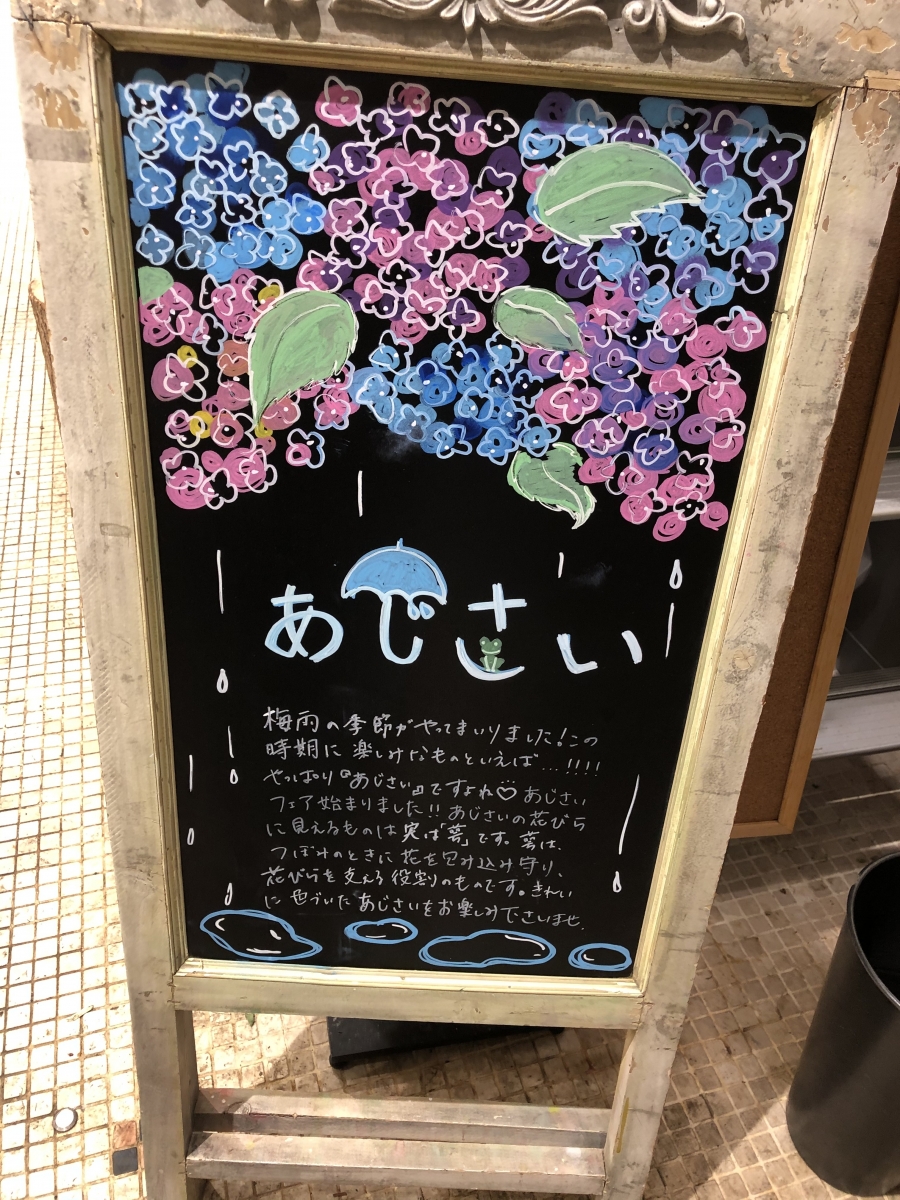 あじさい
梅雨の季節がやってまいりました!この
時期に楽しみなものといえば...!!!!
やっぱり『あじさい』ですよね♡あじさい
フェア始まりました!!あじさいの花びら
に見えるものは実は「萼」です。萼は、
つぼみのときに花を包み込み守り、
花びらを支える役割のものです。きれい
に色づいたあじさいをお楽しみ下さいませ.